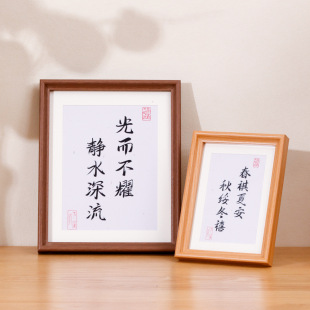 光而不耀
静水深流
春祺夏安
秋绥冬禧